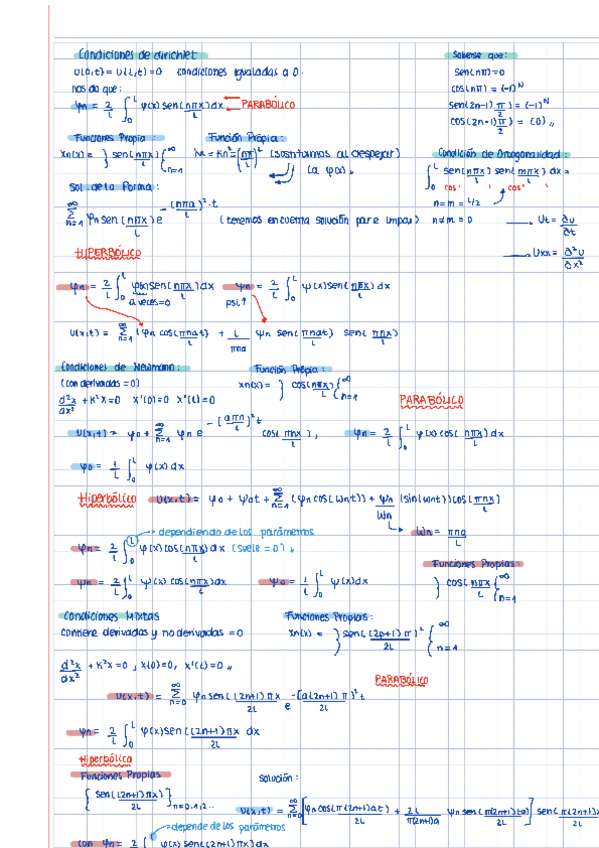 Condiciones de dirichlet
U(0,t)=U(L,t)=0 condiciones igualadas a 0.
nos da que:
φn = 2/L ∫₀ᴸ φ(x) sen(nπx/L) dx PARABÓLICO
Saberse que:
sen(nπ)=0
cos(nπ) = (-1)^N
sen(2n-1) π/2 = (-1)^N
cos(2n-1) π/2 = (0)
Funciones Propia: Función Propia:
Xn(x) = } sen(nπx/L) {∞ n=1 λn = Kn² = (nπ/L)² (sustituimos al despejar)
La φ(x).
Condición de Ortogonalidad:
∫₀ᴸ sen(nπx/L) sen(mπx/L) dx =
cos' cos'
n=m = L/2
n≠m = 0
Sol. de la Forma:
∞ Σ n=1 φn sen(nπx/L) e -(nπa/L)²·t (tenemos en cuenta solución par e impar)
Ut = ∂u/∂t
Uxx = ∂²u/∂x²
HIPERBÓLICO
φn = 2/L ∫₀ᴸ φ(x) sen(nπx/L) dx ψn = 2/L ∫₀ᴸ ψ(x) sen(nπx/L) dx
a veces=0 psi↑
U(x,t) = ∞ Σ n=1 (φn cos(πnat/L) + L/πna ψn sen(πnat/L) sen(πnx/L)
Condiciones de Newmann: Función Propia:
(con derivadas = 0) Xn(x) = } cos(nπx/L) {∞ n=1
d²x/dx² + K²X=0 X'(0)=0 X'(L)=0
PARABÓLICO
U(x,t) = φ0 + ∞ Σ n=1 φn e -[aπn/L]²t cos(πnx/L), φn = 2/L ∫₀ᴸ φ(x) cos(nπx/L) dx
φ0 = 1/L ∫₀ᴸ φ(x) dx
Hiperbólico U(x,t) = φ0 + ψ0t + ∞ Σ n=1 (φn cos(Wnt)) + ψn/Wn (sin(Wnt)) cos(πnx/L)
Wn = πna/L
dependiendo de los parámetros
φn = 2/L ∫₀ᴸ φ(x) cos(nπx/L) dx (suele = 0)
Funciones Propias:
} cos(nπx/L {∞ n=1
ψn = 2/L ∫₀ᴸ ψ(x) cos(nπx/L) dx ψ0 = 1/L ∫₀ᴸ ψ(x) dx
Condiciones Mixtas Funciones Propias:
contiene derivadas y no derivadas = 0 Xn(x) = } sen((2n+1)π/2L)² {∞ n=1
d²x/dx² + K²X=0, X(0)=0, X'(L)=0
PARABÓLICO
U(x,t) = ∞ Σ n=0 φn sen((2n+1)πx/2L e -[a(2n+1)π/2L]²t
φn = 2/L ∫₀ᴸ φ(x) sen((2n+1)πx/2L dx
Hiperbólica
Funciones Propias Solución:
{ sen((2n+1)πx/2L) } n=0,1,2..
U(x,t) = ∞ Σ n=0 [φn cos(π(2n+1)at/2L) + 2L/π(2n+1)a ψn sen(π(2n+1)ta/2L)] sen(π(2n+1)x/2L
depende de los parámetros
con φn = 2 ∫ φ(x) sen((2n+1)πx)dx